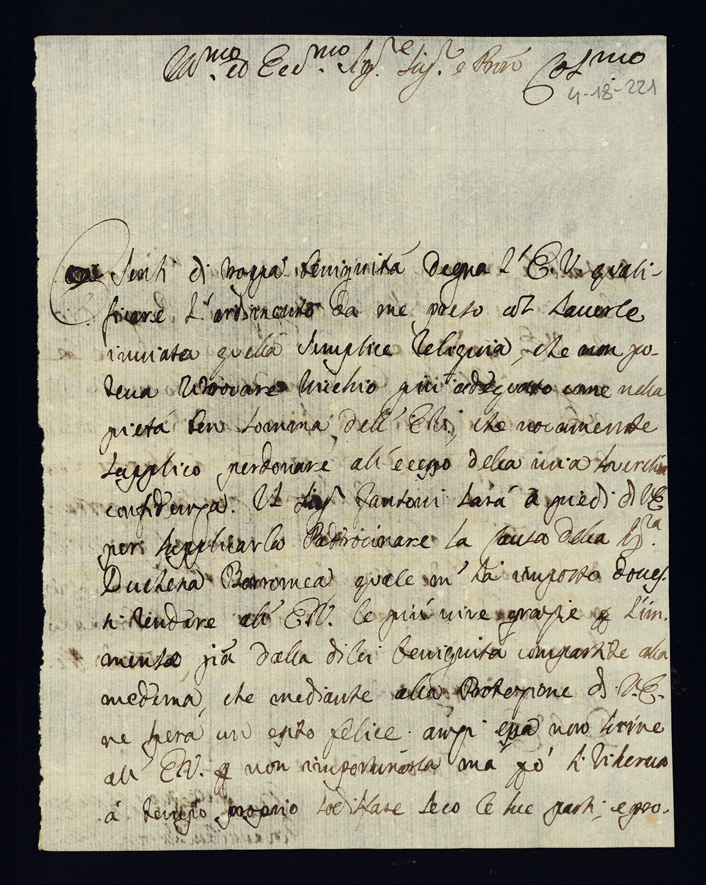 Ill.mo ed Ecc.mo Sig.re Sig.r e Pron Col.mo
4-18-221
Con Senti di troppa benignità degna l'E.V. quali-
ficare l'ardimento da me preso col hauerle
inuiata quella semplice reliquia, che non po-
teua trouare nicchio più adequato come nella
pietà ben somma dell'E.V., che nouamente
supplico perdonare all'ecesso della mia souerchia
confidenza. Il Sig.r Fantoni sarà à piedi di V.E.
per supplicarla Patrocinare la causa della S.ra
Duchessa Borromea quale m'hà imposto doues-
ti rendare all'E.V. le più uiue grazie p l'im-
mento, già dalla di lei benignità compartite alla
medema, che mediante alla Protezione di V.E.
ne spera un esito felice. anzi essa non scriue
all'E.V. p non importunarla mà però si riserua
à tempo proprio sodisfare seco le sue parti, e pro-